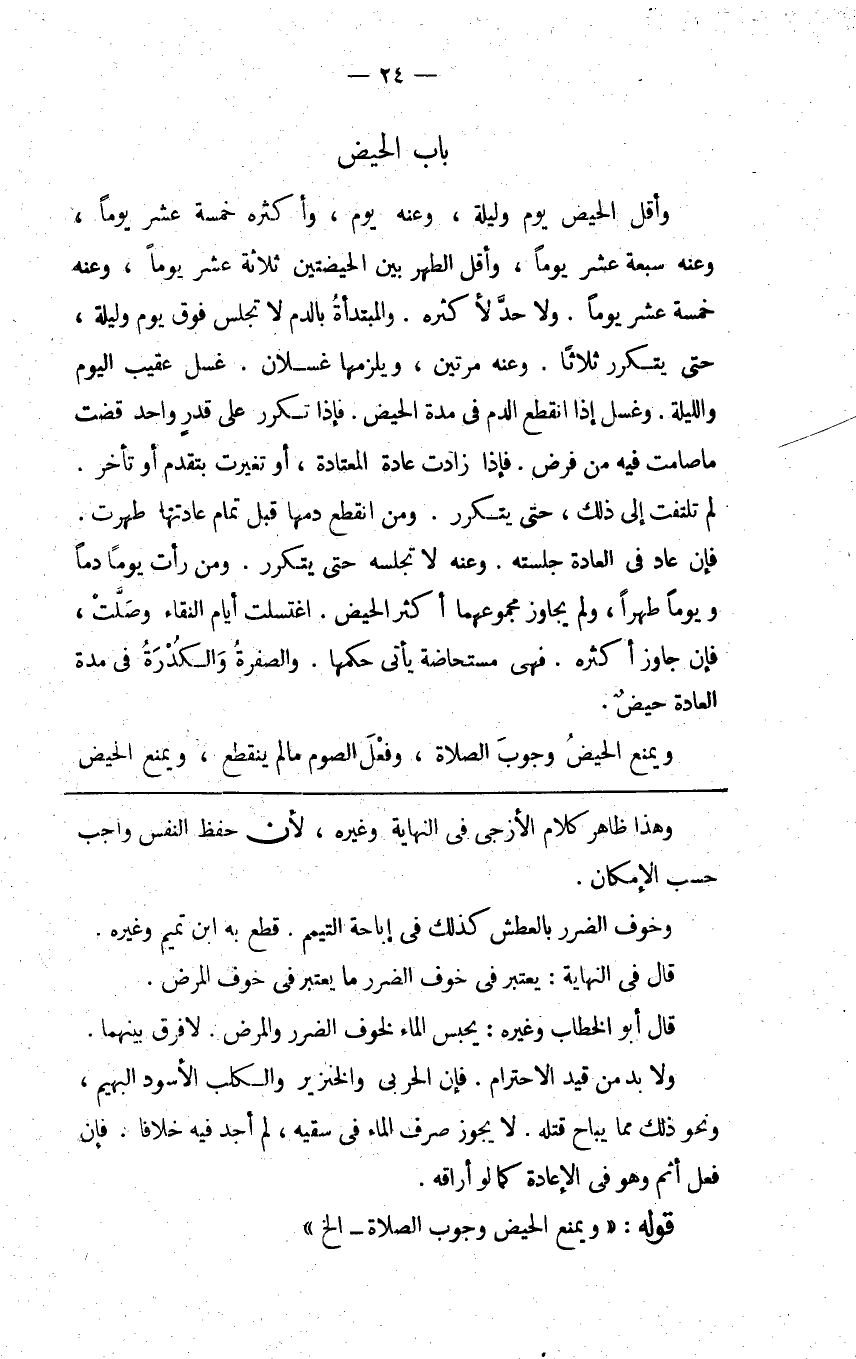 — ٢٤ —
باب الحيض
وأقل الحيض يوم وليلة ، وعنه يوم ، وأكثره خمسة عشر يوماً ،
وعنه سبعة عشر يوماً ، وأقل الطهر بين الحيضتين ثلاثة عشر يوماً ، وعنه
خمسة عشر يوماً . ولا حدَّ لأكثره . والمبتدأةُ بالدم لا تجلس فوق يوم وليلة ،
حتى يتكرر ثلاثًا . وعنه مرتين ، ويلزمها غسلان . غسل عقيب اليوم
والليلة . وغسل إذا انقطع الدم فى مدة الحيض . فإذا تكرر على قدرٍ واحد قضت
ماصامت فيه من فرض . فإذا زادت عادة المعتادة ، أو تغيرت بتقدم أو تأخر .
لم تلتفت إلى ذلك ، حتى يتكرر . ومن انقطع دمها قبل تمام عادتها طهرت .
فإن عاد فى العادة جلسته . وعنه لا تجلسه حتى يتكرر . ومن رأت يومًا دماً
ويوماً طهراً ، ولم يجاوز مجموعهما أكثر الحيض . اغتسلت أيام النقاء وصَلَّتْ ،
فإن جاوز أكثره . فهى مستحاضة يأتى حكمها . والصفرةُ وَالكُدْرَةُ فى مدة
العادة حيضٌ .
ويمنع الحيضُ وجوبَ الصلاة ، وفعْلَ الصوم مالم ينقطع ، ويمنع الحيض
وهذا ظاهر كلام الأزجى فى النهاية وغيره ، لأن حفظ النفس واجب
حسب الإمكان .
وخوف الضرر بالعطش كذلك فى إباحة التيمم . قطع به ابن تميم وغيره .
قال فى النهاية : يعتبر فى خوف الضرر ما يعتبر فى خوف المرض .
قال أبو الخطاب وغيره : يحبس الماء لخوف الضرر والمرض . لافرق بينهما .
ولا بد من قيد الاحترام . فإن الحربى والخنزير والكلب الأسود البهيم ،
ونحو ذلك مما يباح قتله . لا يجوز صرف الماء فى سقيه ، لم أجد فيه خلافا . فإن
فعل أثم وهو فى الإعادة كما لو أراقه .
قوله : « ويمنع الحيض وجوب الصلاة ــ الخ »